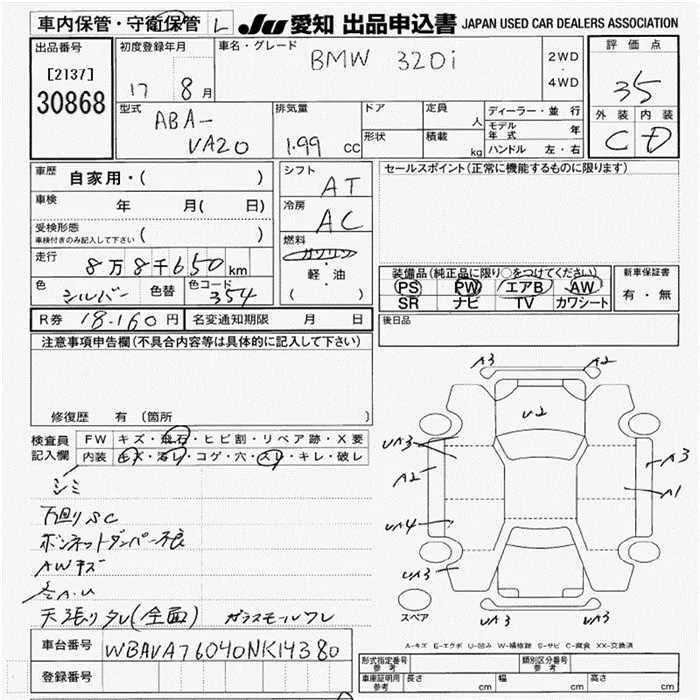 車内保管・守衛保管 L JU 愛知 出品申込書 JAPAN USED CAR DEALERS ASSOCIATION
出品番号 初度登録年月 車名・グレード 評価点
[2137] 17 8月 BMW 320i 2WD・4WD 35
30868 型式 排気量 ドア 定員 人 ディーラー・並行 外装 内装
ABA- モデル年式 年
VA20 1.99 cc 形状 積載 kg ハンドル 左・右 C D
車歴 自家用・( ) シフト AT セールスポイント(正常に機能するものに限ります)
車検 年 月( 日) 冷房 AC
受検形態
車検付きのみ記入して下さい ( ) 燃料
走行 8万8千650km ガソリン・軽・油 ( ) 装備品(純正品に限り○をつけてください) 新車保証書
色 シルバー 色替 色コード 354 PS PW エアB AW 有・無
SR ナビ TV カワシート
R券 18.160円 名変通知期限 月 日 後日品
注意事項申告欄(不具合内容等は具体的に記入して下さい)
修復歴 有(箇所 )
検査員記入欄 FW キズ・飛石・ヒビ割・リペア跡・X要
内装 キズ・汚レ・コゲ・穴・スレ・キレ・破レ
シミ
下回りSC
ボンネットダンパー不良
AWキズ
天張りタレ(全面) ガラスモールワレ
A3 A2
U2
UA3 A3
A2 A1
UA4
UA3
UA3 UA3
スペア
A-キズ E-エクボ U-凹み W-補修跡 S-サビ C-腐食 XX-交換済
車台番号 WBAVA76040NK14380
登録番号
形式指定番号 参考 類別区分番号 参考
車庫証明用 参考 長さ cm 幅 cm 高さ cm